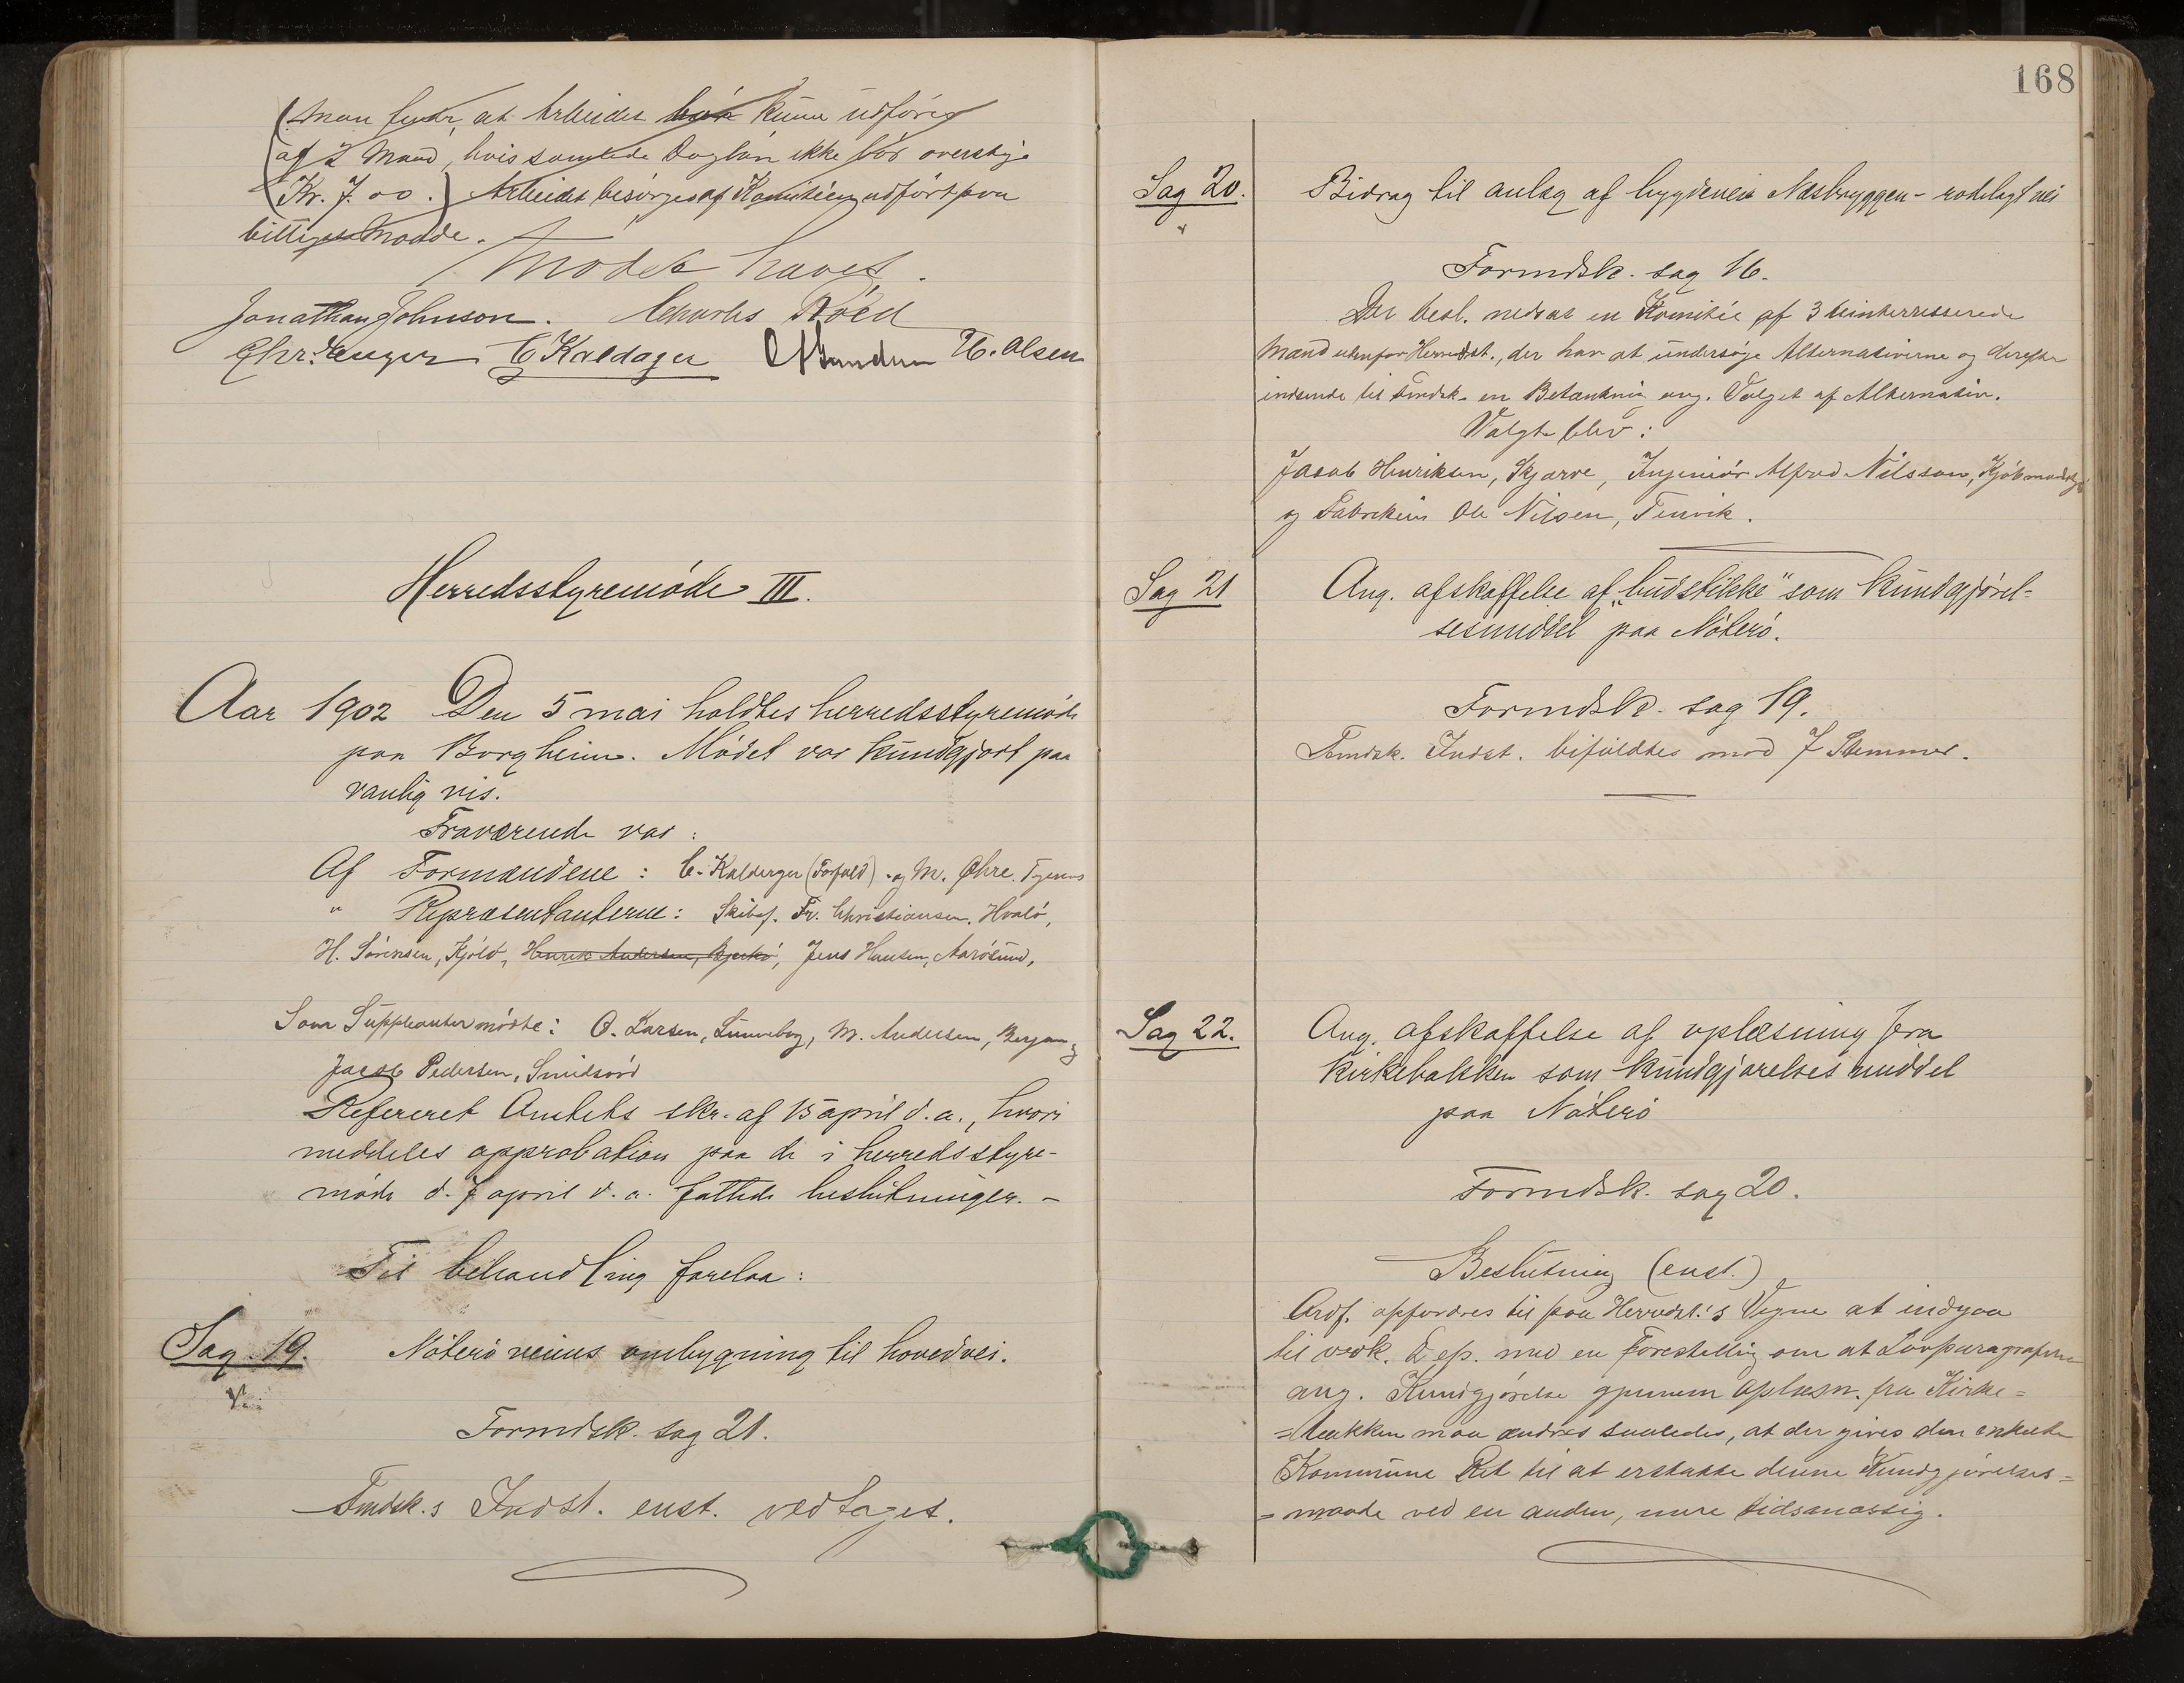 (Man finder, at Arbeidet bør kunne udføres
af 2 Mand, hvis samlede Dagløn ikke bør overstige
Kr. 7.00.) Arbeidet besørges af Komiteen udført paa
billigste Maade.
Mødet hævet.
Jonathan Johnson. Charles Røed
Chr. Unger C Kaldager O Amundsen H. Olsen
Herredsstyremøde III.
Aar 1902 Den 5 mai holdtes herredsstyremøde
paa Borgheim. Mødet var kundgjort paa
vanlig vis.
Fraværende var:
Af Formændene: C. Kaldager (Forfald) og M. Øhre.
" Repræsentanterne: Skibsf. Fr. Christiansen, Hvalø,
H. Sørensen, Kjøle, Henrik Andersen, Bjerkø, Jens Hansen, Aarøsund,
Som Suppleanter mødte: O. Larsen, M. Andersen, Bergan og
Jacob Pedersen, Smidsrød
Refereret Amtets skr. af 15 april d.a., hvori
meddeles approbation paa de i herredsstyre-
møde d. 7 april d.a. fattede beslutninger. -
Til behandling forelaa:
Sag 19. Nøterøveiens ombygning til hovedvei.
Formdsk. sag 21.
Fmdsk.s Indst. enst. vedtaget.
168
Sag 20. Bidrag til anlæg af bygdevei Næsbryggen - rodelagt vei
Formdsk. sag 16.
Der besl. nedsat en Komitée af 3 uinteresserede
Mænd udenfor Herredst., der har at undersøge Alternativerne og derefter
indsende til Fmdsk. en Betænkning ang. Valget af Alternativ.
Valgte blev:
Jacob Henriksen, Skjerve, Ingeniør Alfred Nilsson,
og Fabrikeier Ole Nilsen, Tenvik.
Sag 21 Ang. afskaffelse af „budstikke" som kundgjørel-
sesmiddel paa Nøterø.
Formdsk. sag 19.
Fmdsk. Indst. bifaldtes mod 7 Stemmer.
Sag 22. Ang. afskaffelse af oplæsning fra
kirkebakken som kundgjørelsesmiddel
paa Nøterø
Formdsk. sag 20.
Beslutning (enst.)
Ordf. opfordres til paa Herredst.'s Vegne at indgaa
til vedk. Dep. med en Forestilling om at Lovparagraferne
ang. Kundgjørelse gjennem Oplæsn. fra Kirke=
=bakken maa ændres saaledes, at der gives den enkelte
Kommune Ret til at erstatte denne Kundgjørelses=
=maade ved en anden, mere tidsmæssig.